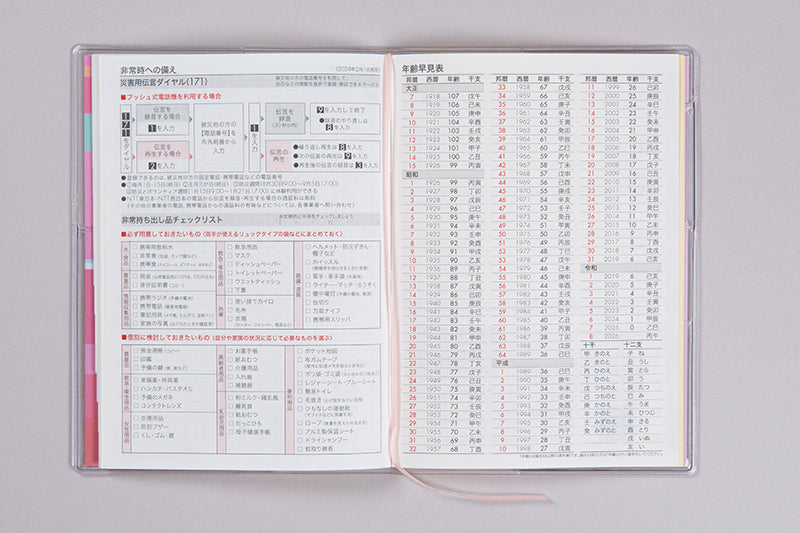 非常時への備え
災害用伝言ダイヤル(171)
■プッシュ式電話機を利用する場合
171をダイヤル
伝言を
録音する場合
1を入力
伝言を
再生する場合
2を入力
被災地の方の
【電話番号】を
市外局番から
入力
1を入力
伝言を
録音
(30秒以内)
9を入力して終了
●録音のやり直しは
8を入力
伝言の
再生
●繰り返し再生は8を入力
●次の伝言の再生は9を入力
●再生後の伝言の録音は3を入力
非常持ち出し品チェックリスト
■必ず用意しておきたいもの(両手が使えるリュックタイプの袋などにまとめておく)
□携帯用飲料水
□非常食
□携帯食
□現金
□身分証明書(コピー)
□携帯ラジオ(予備の電池)
□携帯電話
□筆記用具
□家族の写真
□救急用品
□マスク
□ティッシュペーパー
□トイレットペーパー
□ウエットティッシュ
□下着
□使い捨てカイロ
□毛布
□衣類
□ヘルメット・防災ずきん・
帽子など
□ホイッスル
□軍手・革手袋
□ライター・マッチ・ろうそく
□懐中電灯
□缶切り
□万能ナイフ
□携帯用スリッパ
■個別に検討しておきたいもの(自分や家族の状況に応じて必要なものを選ぶ)
□預金通帳(コピー)
□印鑑
□予備の鍵
□常備薬・持病薬
□ハンカチ・バスタオル
□予備のメガネ
□コンタクトレンズ
□生理用品
□防犯ブザー
□くし・ゴム・鏡
□お薬手帳
□紙おむつ
□介護用品
□入れ歯
□補聴器
□粉ミルク・哺乳瓶
□離乳食
□紙おむつ
□だっこひも
□母子健康手帳
□ポケット地図
□布ガムテープ
□ポリ袋・ゴミ袋
□レジャーシート・ブルーシート
□簡易トイレ
□毛抜き
□ひもなしの運動靴
□ロープ
□アルミ製保温シート
□ドライシャンプー
□蚊取り線香
年齢早見表
邦暦 西暦 年齢 干支
大正
7 1918 107 戊午
8 1919 106 己未
9 1920 105 庚申
10 1921 104 辛酉
11 1922 103 壬戌
12 1923 102 癸亥
13 1924 101 甲子
14 1925 100 乙丑
15 1926 99 丙寅
昭和
1 1926 99 丙寅
2 1927 98 丁卯
3 1928 97 戊辰
4 1929 96 己巳
5 1930 95 庚午
6 1931 94 辛未
7 1932 93 壬申
8 1933 92 癸酉
9 1934 91 甲戌
10 1935 90 乙亥
11 1936 89 丙子
12 1937 88 丁丑
13 1938 87 戊寅
14 1939 86 己卯
15 1940 85 庚辰
16 1941 84 辛巳
17 1942 83 壬午
18 1943 82 癸未
19 1944 81 甲申
20 1945 80 乙酉
21 1946 79 丙戌
22 1947 78 丁亥
23 1948 77 戊子
24 1949 76 己丑
25 1950 75 庚寅
26 1951 74 辛卯
27 1952 73 壬辰
28 1953 72 癸巳
29 1954 71 甲午
30 1955 70 乙未
31 1956 69 丙申
32 1957 68 丁酉
邦暦 西暦 年齢 干支
33 1958 67 戊戌
34 1959 66 己亥
35 1960 65 庚子
36 1961 64 辛丑
37 1962 63 壬寅
38 1963 62 癸卯
39 1964 61 甲辰
40 1965 60 乙巳
41 1966 59 丙午
42 1967 58 丁未
43 1968 57 戊申
44 1969 56 己酉
45 1970 55 庚戌
46 1971 54 辛亥
47 1972 53 壬子
48 1973 52 癸丑
49 1974 51 甲寅
50 1975 50 乙卯
51 1976 49 丙辰
52 1977 48 丁巳
53 1978 47 戊午
54 1979 46 己未
55 1980 45 庚申
56 1981 44 辛酉
57 1982 43 壬戌
58 1983 42 癸亥
59 1984 41 甲子
60 1985 40 乙丑
61 1986 39 丙寅
62 1987 38 丁卯
63 1988 37 戊辰
64 1989 36 己巳
平成
1 1989 36 己巳
2 1990 35 庚午
3 1991 34 辛未
4 1992 33 壬申
5 1993 32 癸酉
6 1994 31 甲戌
7 1995 30 乙亥
8 1996 29 丙子
9 1997 28 丁丑
10 1998 27 戊寅
邦暦 西暦 年齢 干支
11 1999 26 己卯
12 2000 25 庚辰
13 2001 24 辛巳
14 2002 23 壬午
15 2003 22 癸未
16 2004 21 甲申
17 2005 20 乙酉
18 2006 19 丙戌
19 2007 18 丁亥
20 2008 17 戊子
21 2009 16 己丑
22 2010 15 庚寅
23 2011 14 辛卯
24 2012 13 壬辰
25 2013 12 癸巳
26 2014 11 甲午
27 2015 10 乙未
28 2016 9 丙申
29 2017 8 丁酉
30 2018 7 戊戌
31 2019 6 己亥
令和
1 2019 6 己亥
2 2020 5 庚子
3 2021 4 辛丑
4 2022 3 壬寅
5 2023 2 癸卯
6 2024 1 甲辰
7 2025 0 乙巳
8 2026 丙午
十干 十二支
甲 きのえ 子 ね
乙 きのと 丑 うし
丙 ひのえ 寅 とら
丁 ひのと 卯 う
戊 つちのえ 辰 たつ
己 つちのと 巳 み
庚 かのえ 午 うま
辛 かのと 未 ひつじ
壬 みずのえ 申 さる
癸 みずのと 酉 とり
戌 いぬ
亥 い